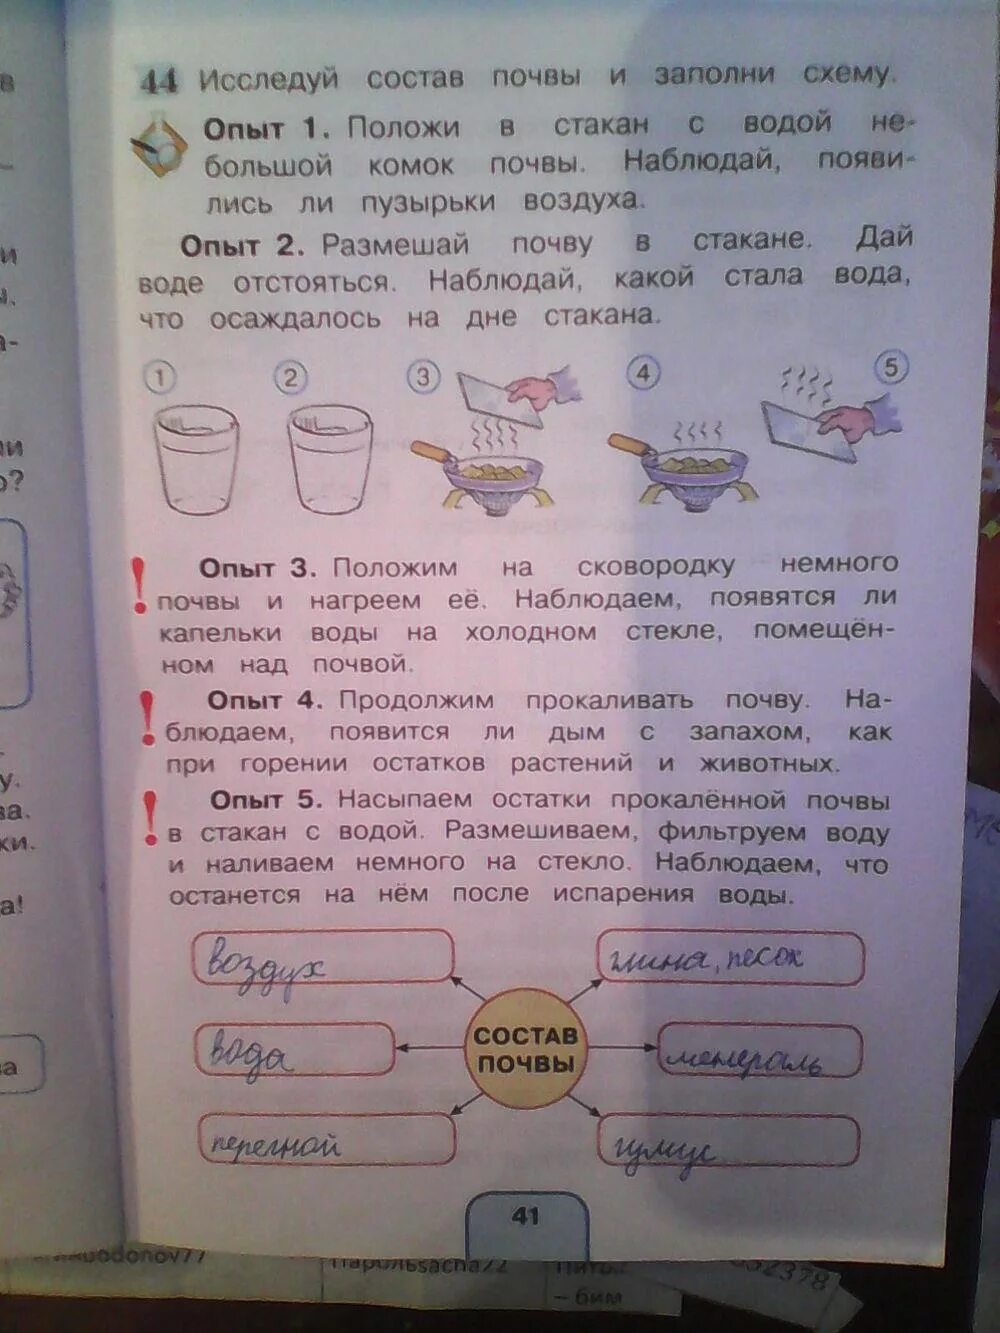 44 Исследуй состав почвы и заполни схему.
Опыт 1. Положи в стакан с водой не-
большой комок почвы. Наблюдай, появи-
лись ли пузырьки воздуха.
Опыт 2. Размешай почву в стакане. Дай
воде отстояться. Наблюдай, какой стала вода,
что осаждалось на дне стакана.
1 2 3 4 5
! Опыт 3. Положим на сковородку немного
почвы и нагреем её. Наблюдаем, появятся ли
капельки воды на холодном стекле, помещён-
ном над почвой.
! Опыт 4. Продолжим прокаливать почву. На-
блюдаем, появится ли дым с запахом, как
при горении остатков растений и животных.
! Опыт 5. Насыпаем остатки прокалённой почвы
в стакан с водой. Размешиваем, фильтруем воду
и наливаем немного на стекло. Наблюдаем, что
останется на нём после испарения воды.
воздух
глина, песок
СОСТАВ
ПОЧВЫ
вода
менераль
перегной
гумус
41
Парольsacha22
– бим